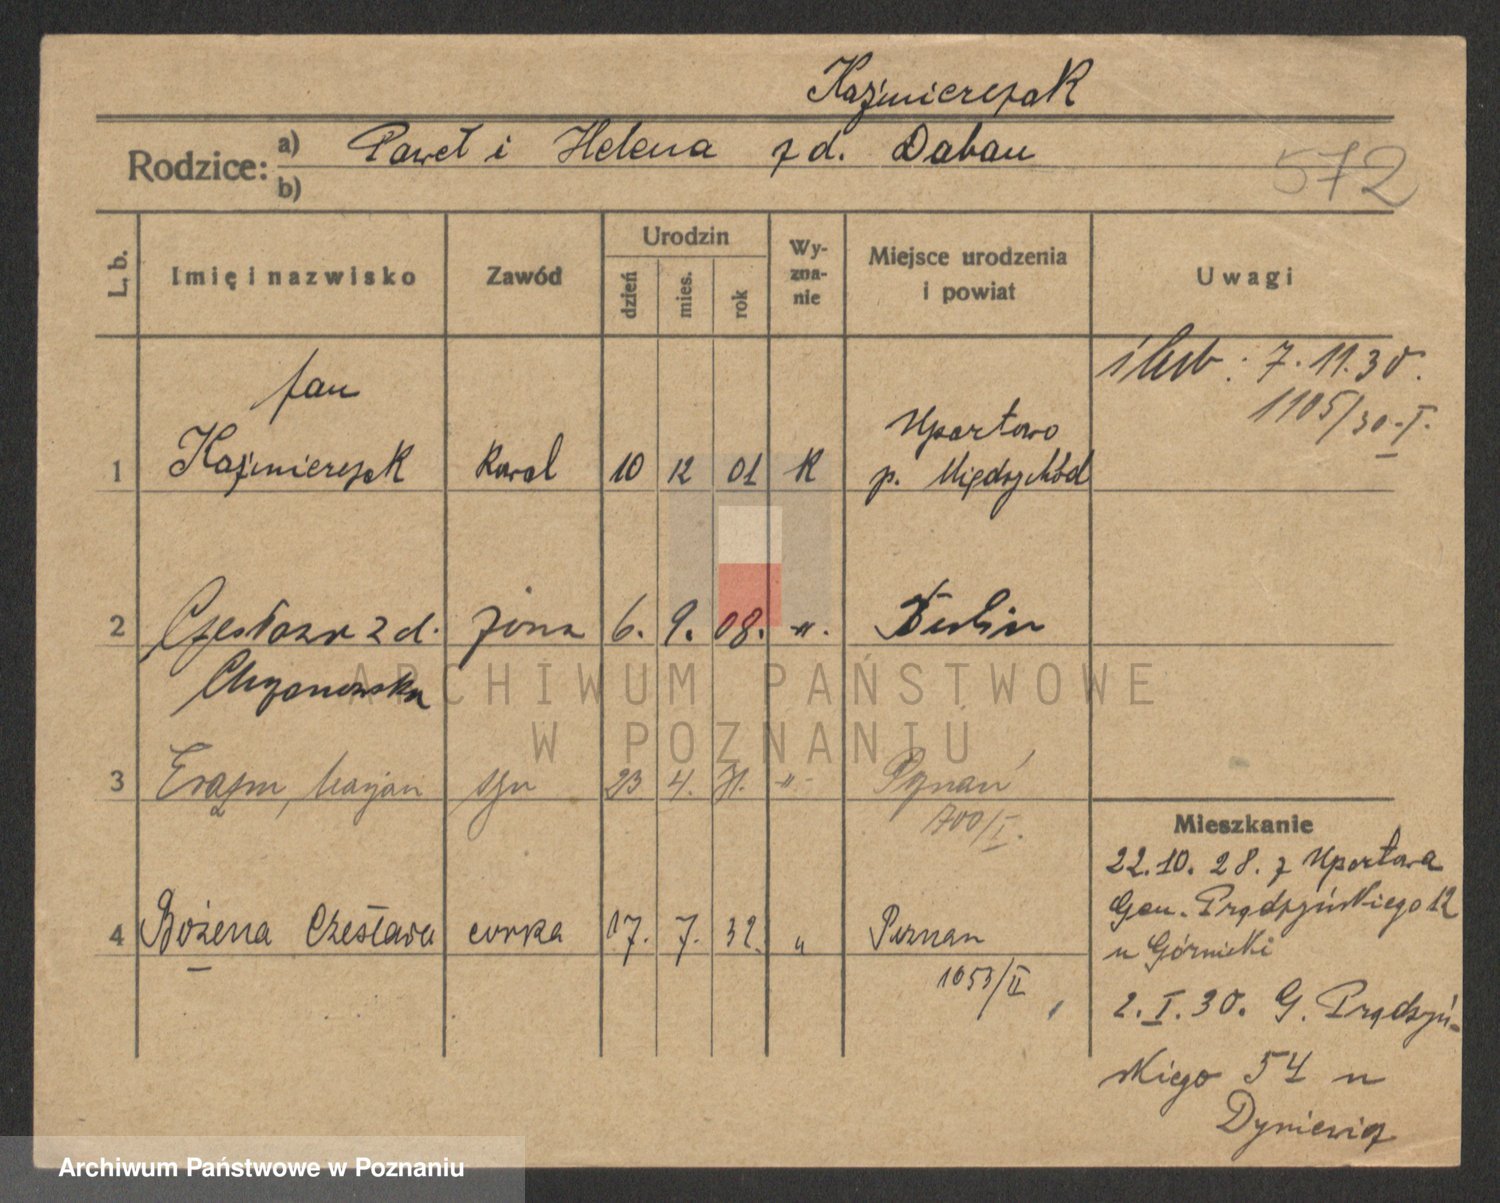 Kaźmierczak
Rodzice: a) Paweł i Helena z d. Daban
b)
572
L. b.
Imię i nazwisko
Zawód
Urodzin
dzień
mies.
rok
Wy-
zna-
nie
Miejsce urodzenia
i powiat
Uwagi
ślub. 7.11.30.
1105/30.I.
Jan
1 Kaźmierczak kowal 10 12 01 K Upartowo
p. Międzychód
2 Czesława z d. żona 6. 9. 08. -"-. Berlin
Chrzanowska
3 Erazm, Marjan syn 23 4. 31. -"- Poznań
700/I.
4 Bożena Czesława córka 17. 7. 32. " Poznań
1053/II
Mieszkanie
22.10.28. z Upartowa
Gen. Prądzyńskiego 12
u Górnicki
2.I.30. G. Prądzyń-
skiego 54 u
Dyniewicz
ARCHIWUM PAŃSTWOWE
W POZNANIU
Archiwum Państwowe w Poznaniu